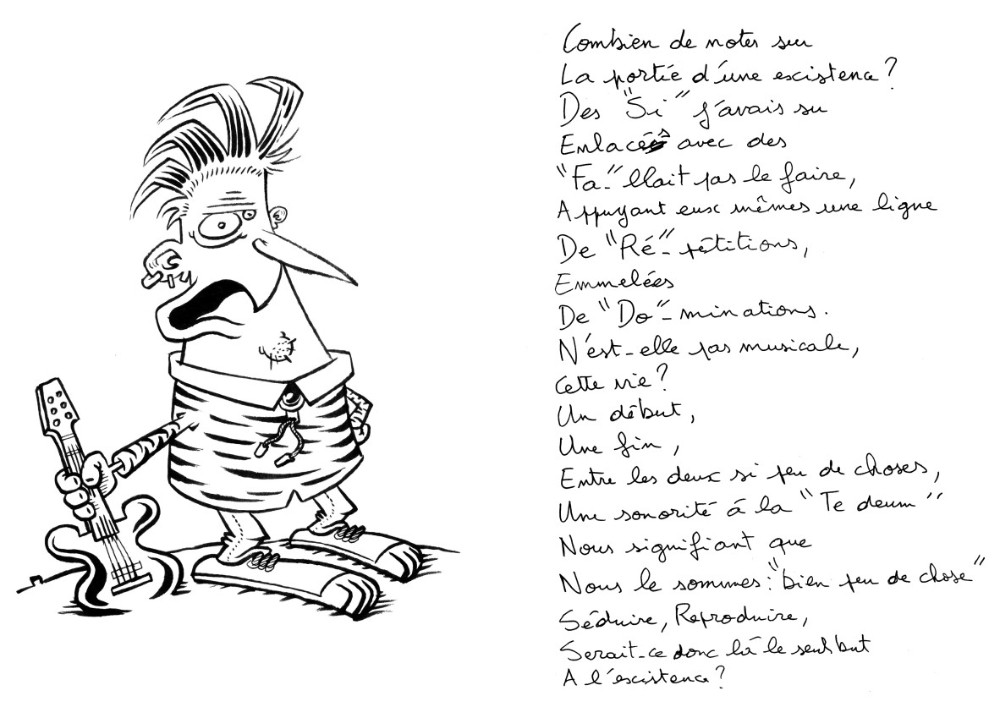 Combien de notes sur
La portée d'une existence ?
Des "Si" j'avais su
Enlacés avec des
"Fa-"llait pas le faire,
Appuyant eux mêmes une ligne
De "Ré"-pétitions,
Emmelées
De "Do"-minations.
N'est-elle pas musicale,
Cette vie ?
Un début,
Une fin,
Entre les deux si peu de choses,
Une sonorité à la "Te deum"
Nous signifiant que
Nous le sommes : "bien peu de chose"
Séduire, Reproduire,
Serait-ce donc là le seul but
A l'existence ?